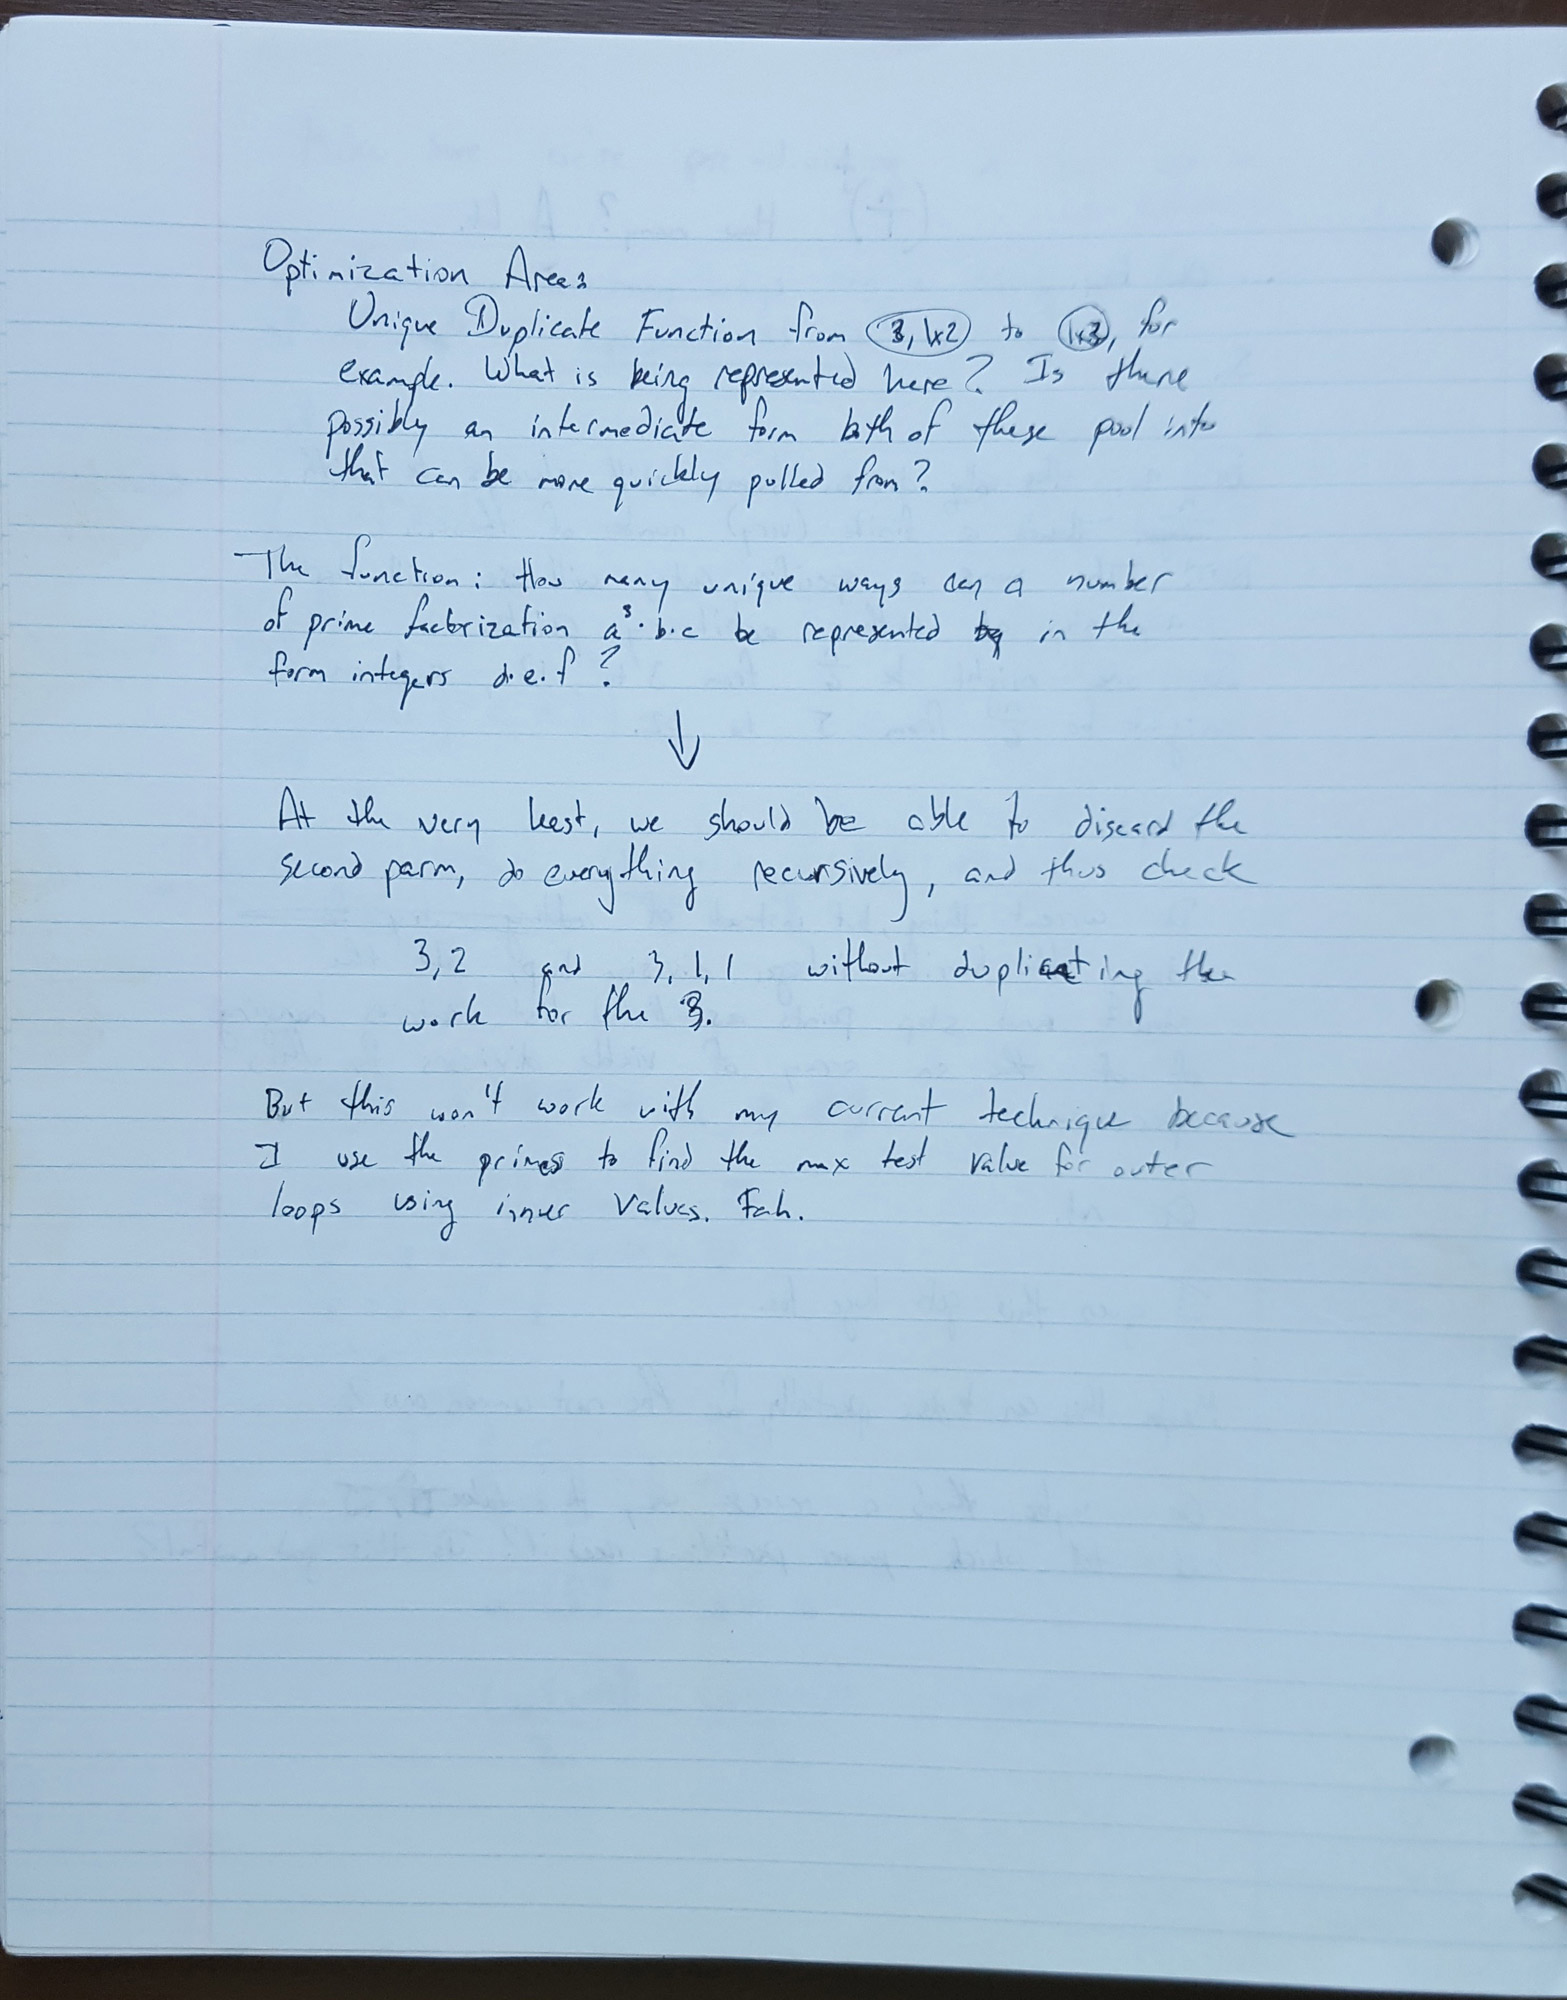 Optimization Areas
Unique Duplicate Function from 3, 1x2 to 1x3, for
example. What is being represented here? Is there
possibly an intermediate form both of these pool into
that can be more quickly pulled from?
The function: How many unique ways can a number
of prime factorization a³·b·c be represented in the
form integers d·e·f?
↓
At the very least, we should be able to discard the
second parm, do everything recursively, and thus check
3,2 and 3,1,1 without duplicating the
work for the 3.
But this won't work with my current technique because
I use the primes to find the max test value for outer
loops using inner values. Fah.